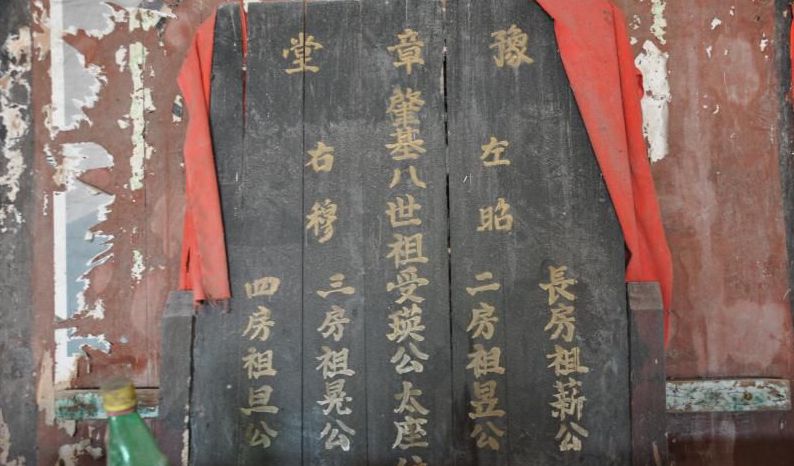 豫章堂
左昭
右穆
長房祖薪公
二房祖昱公
肇基八世祖受瑛公太座
三房祖晃公
四房祖旦公